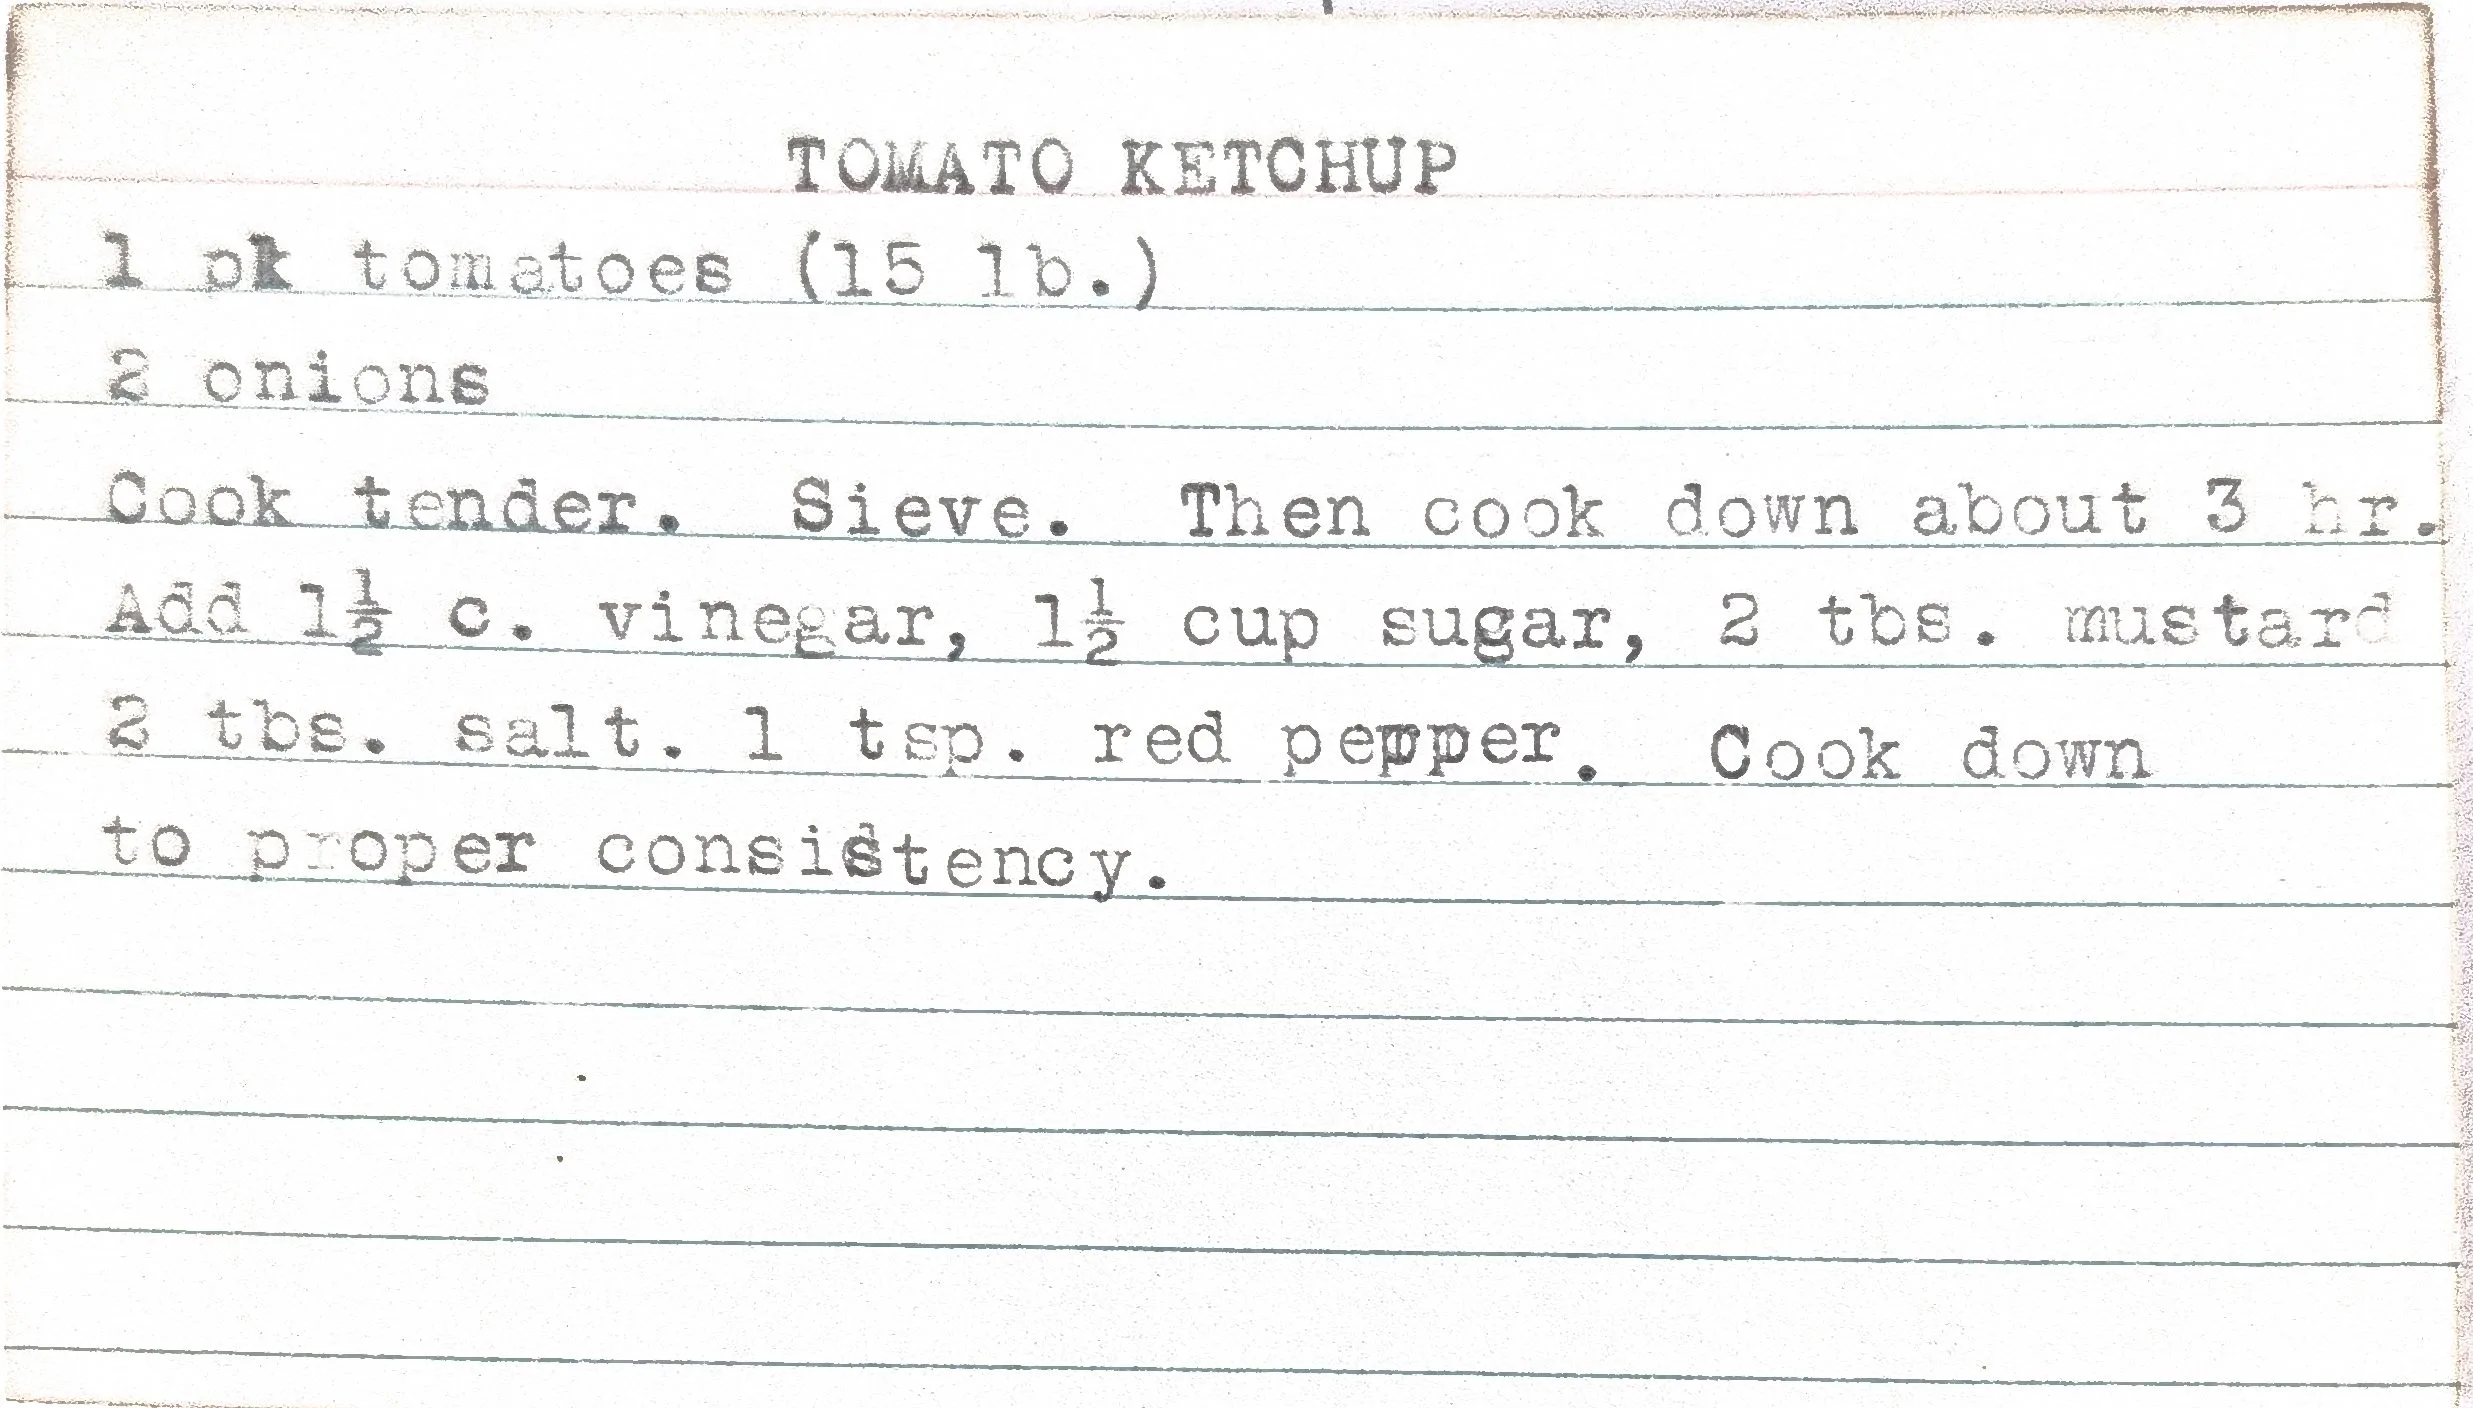 TOMATO KETCHUP
1 pk tomatoes (15 lb.)
2 onions
Cook tender. Sieve. Then cook down about 3 hr.
Add 1½ c. vinegar, 1½ cup sugar, 2 tbs. mustard
2 tbs. salt. 1 tsp. red pepper. Cook down
to proper consistency.